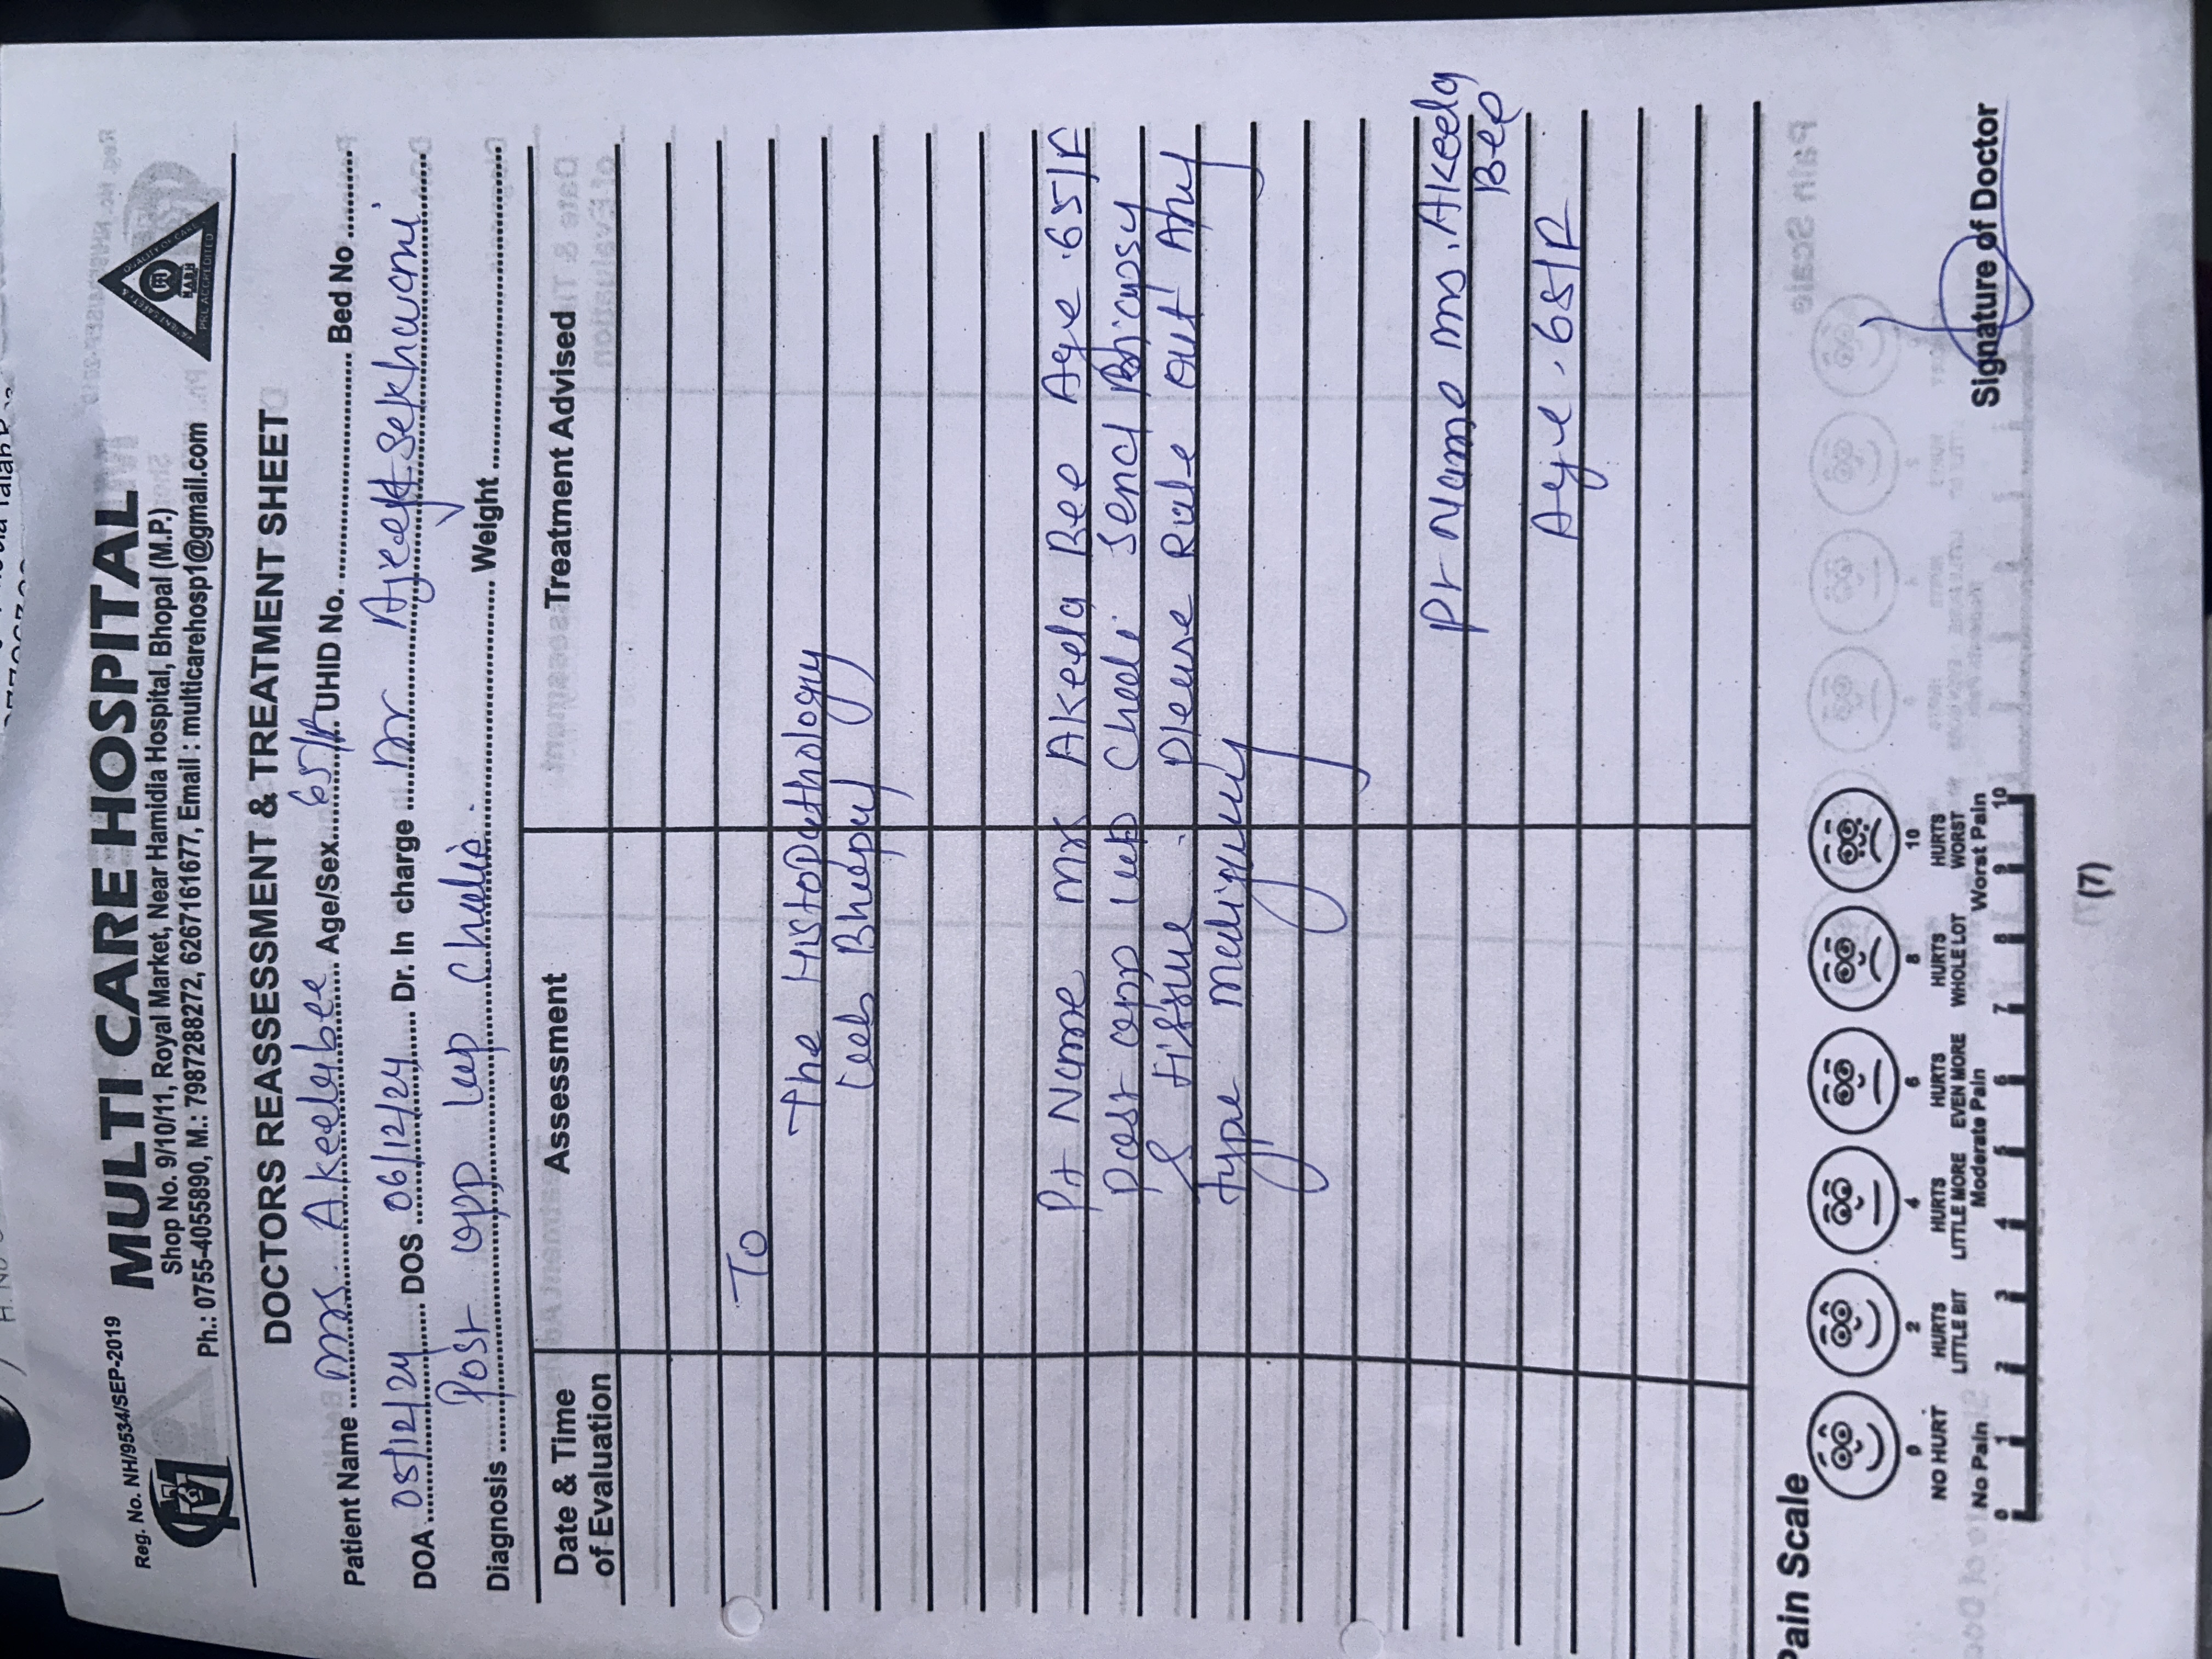 Reg. No. NH/9534/SEP-2019
MULTI CARE HOSPITAL
Shop No. 9/10/11, Royal Market, Near Hamidia Hospital, Bhopal (M.P.)
Ph.: 0755-4055890, M.: 7987288272, 6267161677, Email : multicarehosp1@gmail.com
DOCTORS REASSESSMENT & TREATMENT SHEET
Patient Name ms Akeela bee Age/Sex 65/F UHID No. Bed No
DOA 05/12/24 DOS 06/12/24 Dr. In charge Dr Ajeet Sekhwani
Diagnosis Post opp Lap Chole. Weight
Date & Time of Evaluation Assessment Treatment Advised
To
The Histopathology
Lab Bhopal
Pt Name Mrs Akeela Bee Age .65/F
Post opp Lap Chole. Send
& tissue. Please Rule out Any
type
Pt Name ms. Akeela
Bee
Age . 65/F
Pain Scale
0 2 4 6 8 10
NO HURT HURTS LITTLE BIT HURTS LITTLE MORE HURTS EVEN MORE HURTS WHOLE LOT HURTS WORST
No Pain Moderate Pain Worst Pain
0 1 2 3 4 5 6 7 8 9 10
Signature of Doctor
(7)